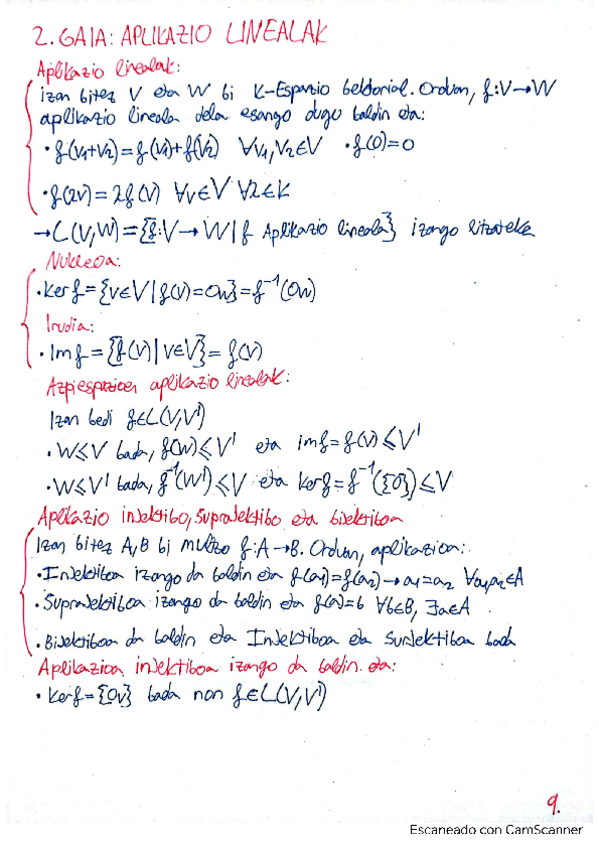 2. GAIA: APLIKAZIO LINEALAK
Aplikazio linealak:
izan bitez V eta W bi K-Espazio bektorial. Orduan, f:V→W
aplikazio lineala dela esango dugu baldin eta:
• f(v1+v2)=f(v1)+f(v2) ∀v1,v2∈V • f(0)=0
• f(λv)=λf(v) ∀v∈V ∀λ∈K
→L(V,W)={f:V→W | f Aplikazio lineala} izango litzateke
Nukleoa:
• Ker f={v∈V | f(v)=0w}=f⁻¹(0w)
Irudia:
• Im f={f(v) | v∈V}=f(V)
Azpiespazioen aplikazio linealak:
Izan bedi f∈L(V,V')
• W≤V bada, f(W)≤V' eta imf=f(V)≤V'
• W≤V' bada, f⁻¹(W')≤V eta Kerf=f⁻¹({0})≤V
Aplikazio injektibo, suprajektibo eta bijektiboa
Izan bitez A,B bi multzo f:A→B. Orduan, aplikazioa:
• Injektiboa izango da baldin eta f(a1)=f(a2)→a1=a2 ∀a1,a2∈A
• Suprajektiboa izango da baldin eta f(a)=b ∀b∈B, ∃a∈A.
• Bijektiboa da baldin eta Injektiboa eta Surjektiboa bada
Aplikazioa injektiboa izango da baldin eta:
• Kerf={0v} bada non f∈L(V,V')
9.
Escaneado con CamScanner